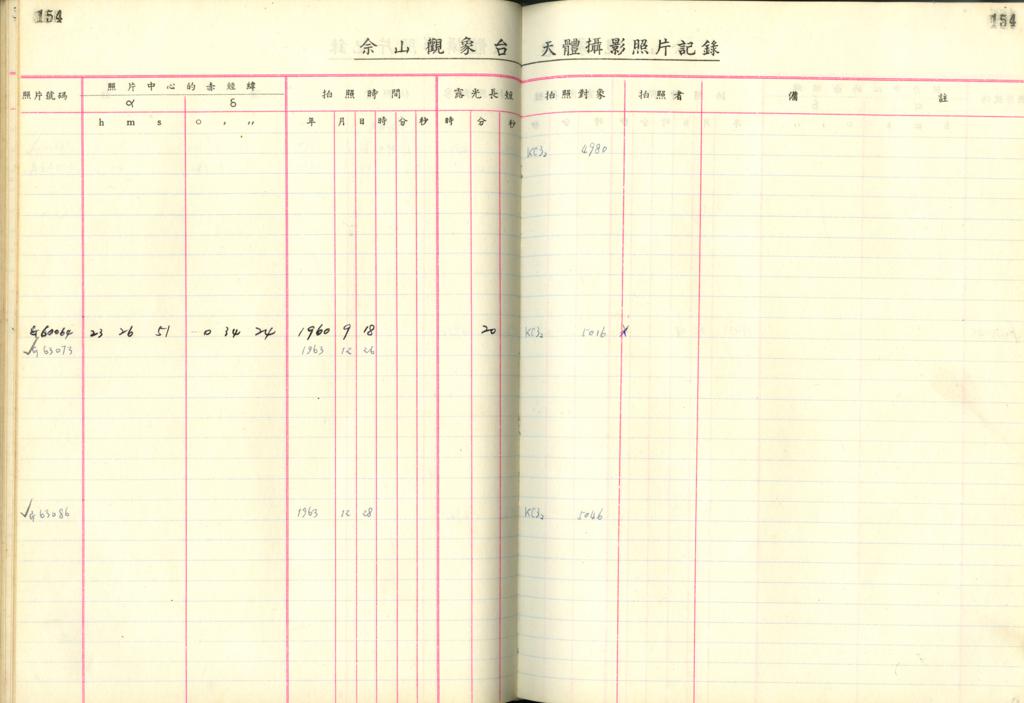 154
154
佘山觀象台 天體攝影照片記錄
照片號碼 照片中心的赤經緯 拍照時間 露光長短 拍照對象 拍照者 備註
α δ
h m s ° ′ ″ 年 月 日 時 分 秒 時 分 秒
4980
60064 23 26 51 0 34 24 1960 9 18 20 5016 x
√ 63073 1963 12 26
√ 63086 1963 12 28 5046